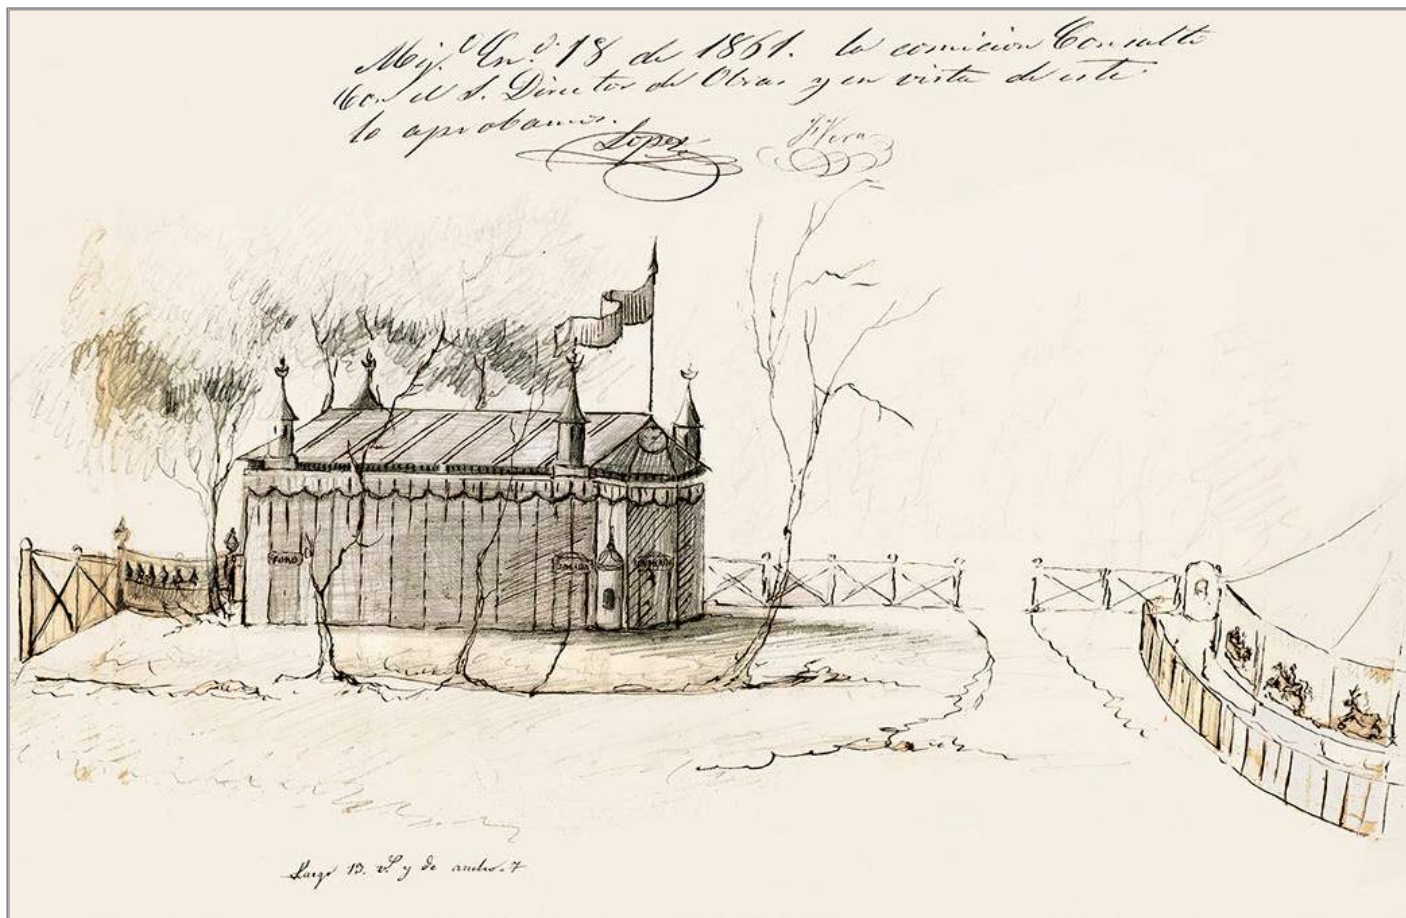 Méj.º En.º 18 de 1861. la comicion Consultó
Con el S. Director de Obras y en vista de este
lo aprobamos.
Lopez
Vera
FORO
SALIDA
Largo 13. v.s y de ancho. 7